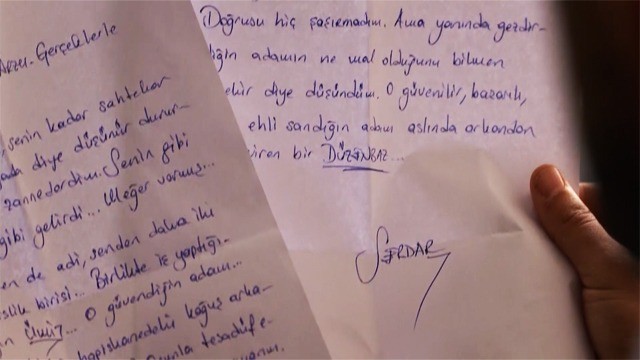 Gerçeklerle
senin kadar sahtekar
diye düşünür durur-
zannederdim. Senin gibi
gibi gelirdi... Meğer varmış...
en de adi, senden daha iki
birisi... Birlikte iş yaptığı-
Ümit... O güvendiğin adam...
hapishanedeki koğuş arka-
tesadüfe-
Doğrusu hiç şaşırmadım. Ama yanında gezdir-
ğin adamın ne mal olduğunu bilmen
ekir diye düşündüm. O güvenilir, başarılı,
ehli sandığın adam aslında arkandan
iren bir DÜZENBAZ...
SERDAR